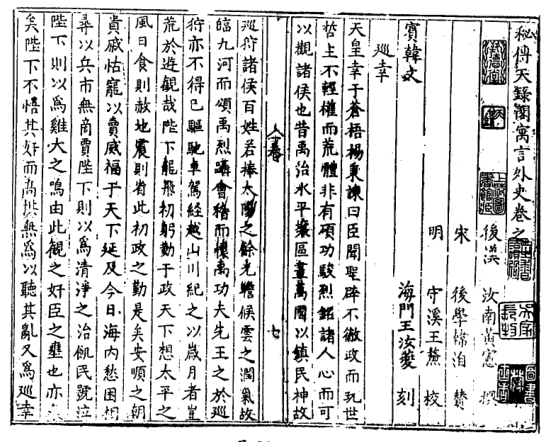 秘傳天錄閣寓言外史卷之
後漢 汝南黃憲 撰
宋 後學韓洎 贊
明 守溪王鏊 校
海門王汝夔 刻
賓韓文
巡幸
天皇幸于蒼梧楊秉諫曰臣聞聖辟不徹政而玩世
哲主不輕權而荒體非有碩功駿烈銘諸人心而可
以觀諸侯也昔禹治水平攘區畫萬國以鎮民神故
七
巡狩諸侯百姓若捧太陽之餘光瞻候雲之潤氣故
臨九河而頌禹烈議會稽而懷禹功夫先王之於巡
狩亦不得已驅馳車駕經越山川紀之以歲月者豈
荒於遊觀哉陛下龍飛初躬勤于政天下想太平之
風日食則赦地震則省此初政之勤是矣安順之朝
貴戚怙寵以賣威福于天下延及今日海內愁困相
尋以兵市無商賈陛下則以為清淨之治飢民號泣
陛下則以為雞犬之鳴由此觀之奸臣之壅也亦
矣陛下不悟其奸而高拱無為以聽其亂又為巡幸